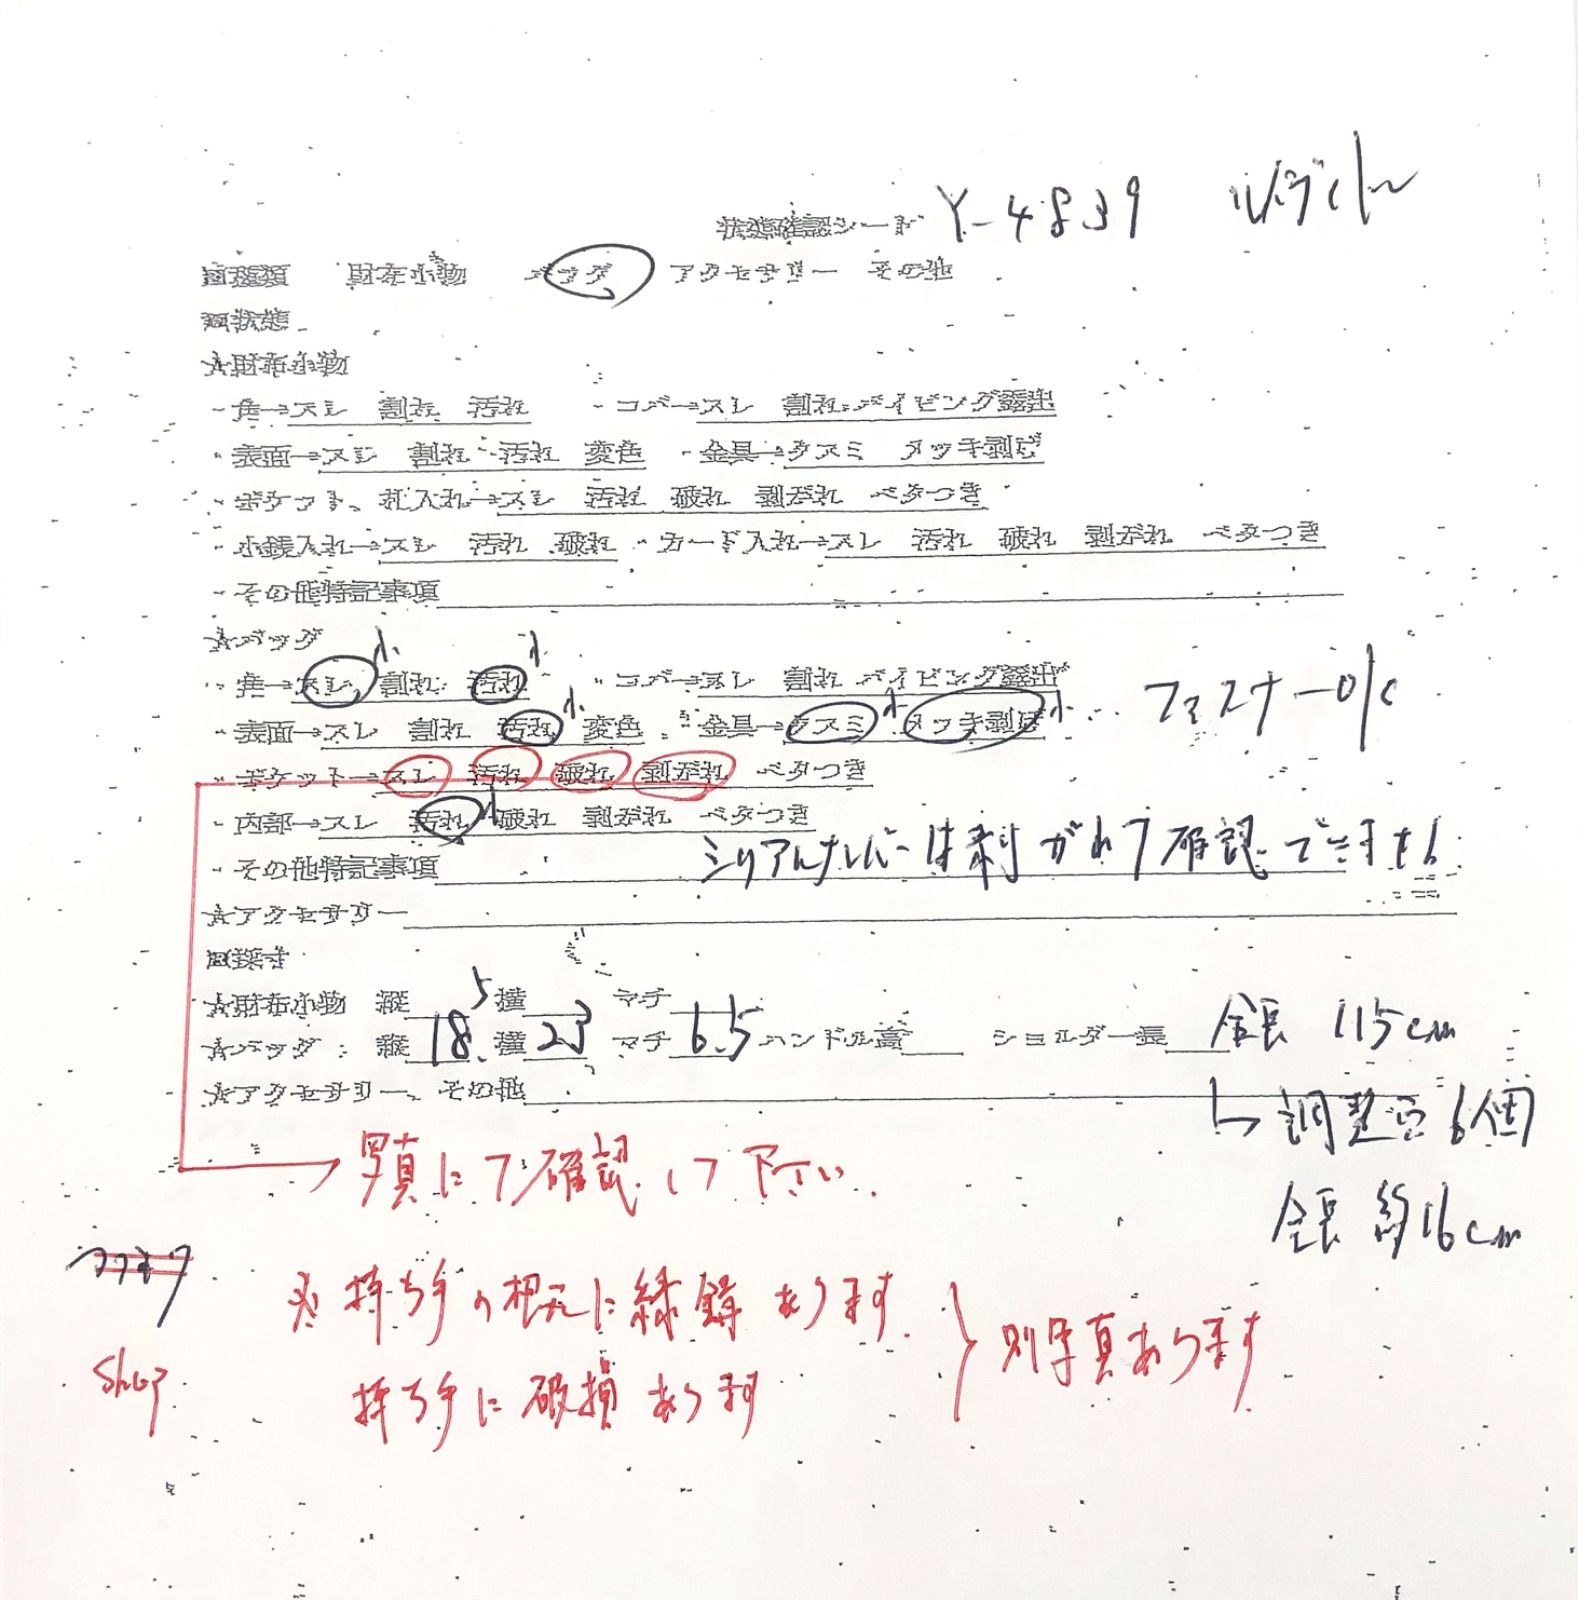 状態確認シート Y-4839 ルイヴィトン
■種類 財布小物 バッグ アクセサリー その他
■状態
☆財布小物
・角→スレ 割れ 汚れ ・コバ→スレ 割れ パイピング露出
・表面→スレ 割れ 汚れ 変色 ・金具→クスミ メッキ剥げ
・ポケット、札入れ→スレ 汚れ 破れ 剥がれ ベタつき
・小銭入れ→スレ 汚れ 破れ ・カード入れ→スレ 汚れ 破れ 剥がれ ベタつき
・その他特記事項
☆バッグ
・角→スレ小 割れ 汚れ小 ・コバ→スレ 割れ パイピング露出
・表面→スレ 割れ 汚れ小 変色 ・金具→クスミ小 メッキ剥げ小 ファスナーO/C
・ポケット→スレ 汚れ 破れ 剥がれ ベタつき
・内部→スレ 汚れ小 破れ 剥がれ ベタつき
・その他特記事項 シリアルナンバーは剥がれて確認できません
☆アクセサリー
■採寸
☆財布小物 縦 横 マチ
☆バッグ: 縦18.5 横23 マチ6.5 ハンドル高 ショルダー長 全長 115cm
☆アクセサリー、その他
↳調整穴6個
写真にて確認して下さい.
全長 約16cm
※持ち手の根元に緑錆あります.
持ち手に破損あります
別写真あります
Shop